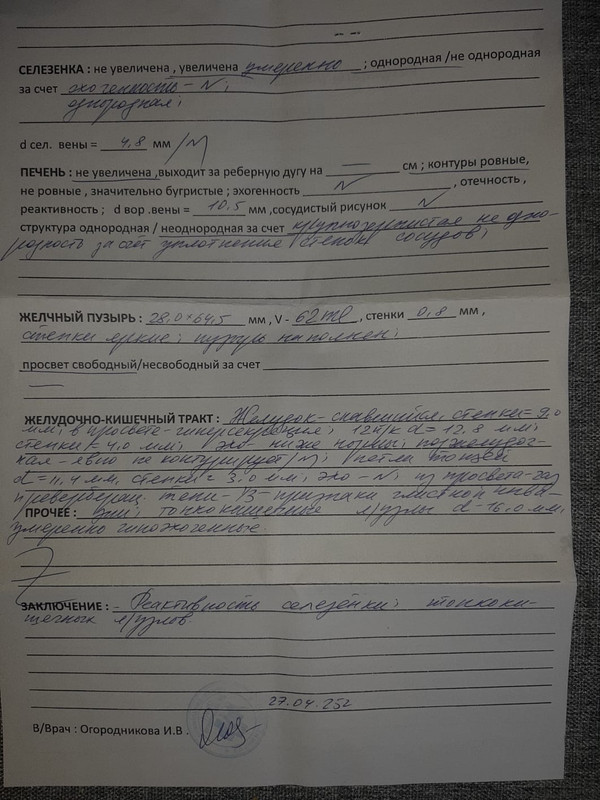 СЕЛЕЗЕНКА : не увеличена , увеличена умеренно ; однородная /не однородная
за счет эхогенность – N;
однородная;
d сел. вены = 4,8 мм /N
ПЕЧЕНЬ : не увеличена ,выходит за реберную дугу на — см ; контуры ровные,
не ровные , значительно бугристые ; эхогенность N , отечность ,
реактивность ; d вор .вены = 10,5 мм ,сосудистый рисунок N
структура однородная / неоднородная за счет крупнозернистая не одно-
родность за счёт уплотнения стенок сосудов;
ЖЕЛЧНЫЙ ПУЗЫРЬ : 28,0×64,5 мм , V - 62ml , стенки 0,8 мм ,
стенки яркие; пузырь наполнен;
просвет свободный/несвободный за счет
—
ЖЕЛУДОЧНО-КИШЕЧНЫЙ ТРАКТ : Желудок - спавшийся, стенки = 9,0
мм; в просвете - 12п/к d = 12,8 мм;
стенки = 4,0 мм; эхо ниже нормы; поджелудоч-
ная – явно не контурирует /N; петли тощей
d = 11,4 мм, стенки = 3,0 мм; эхо – N; из просвета - газ
/реверберац. тени - /3 – признаки глистной инва-
ПРОЧЕЕ : зии; тонкокишечные л/узлы d - 16,0 мм,
умеренно гипоэхогенные.
ЗАКЛЮЧЕНИЕ : - Реактивность селезёнки; тонкоки-
шечных л/узлов
27.04.25г
В/Врач : Огородникова И.В .